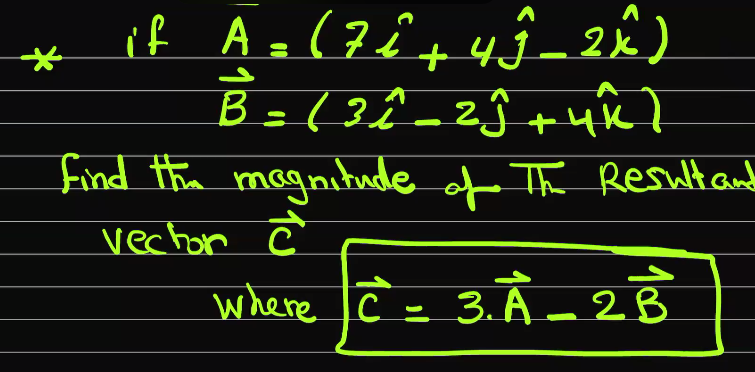 * if A = (7î + 4ĵ - 2k̂)
B⃗ = (3î - 2ĵ + 4k̂)
find the magnitude of Th Resultand
vector C⃗
where C⃗ = 3.A⃗ - 2B⃗